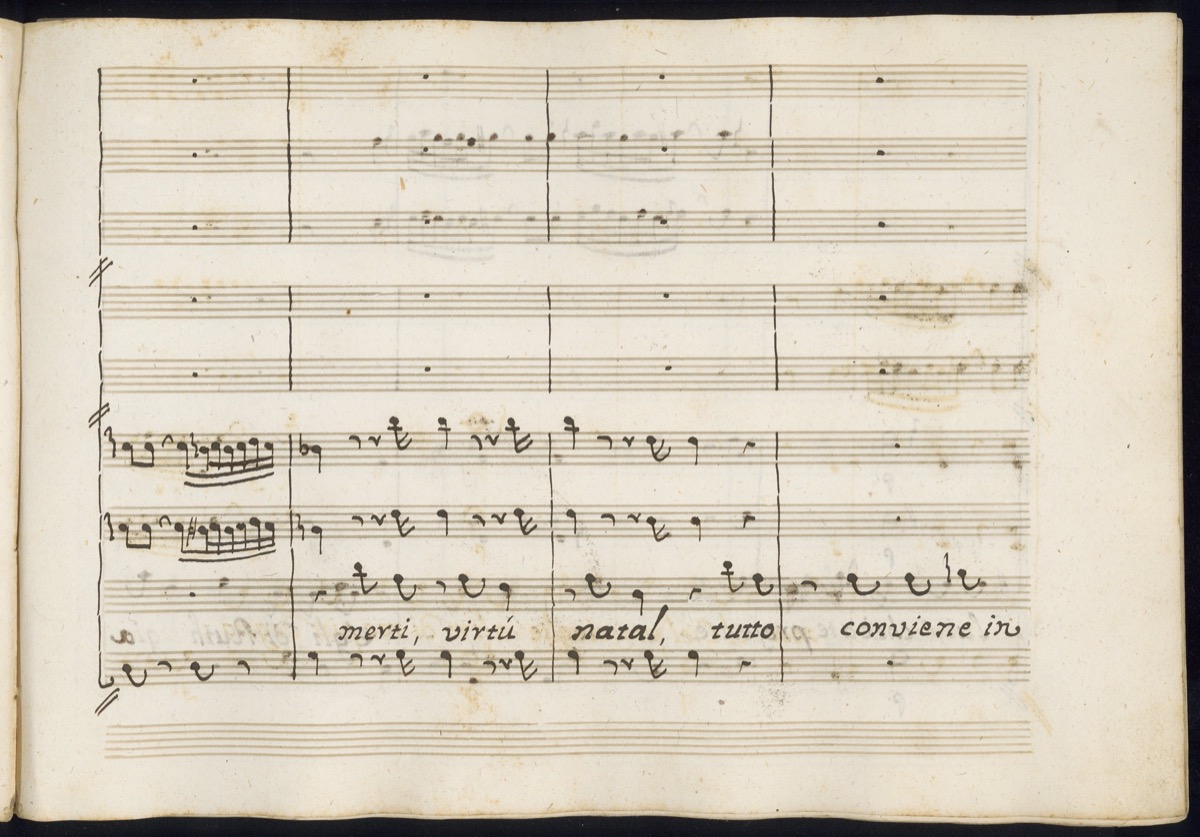 merti, virtú natal, tutto conviene in